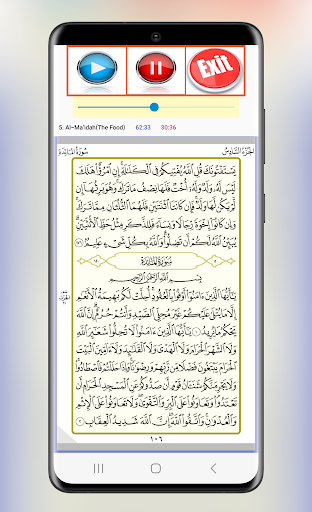 Exit
5. Al-Ma'idah(The Food) 62:33 30:36
الجُزءُ السَّادِسُ سُورَةُ المَائِدَة
يَسْتَفْتُونَكَ قُلِ ٱللَّهُ يُفْتِيكُمْ فِى ٱلْكَلَٰلَةِ إِنِ ٱمْرُؤٌا۟ هَلَكَ
لَيْسَ لَهُۥ وَلَدٌ وَلَهُۥٓ أُخْتٌ فَلَهَا نِصْفُ مَا تَرَكَ وَهُوَ يَرِثُهَآ إِن
لَّمْ يَكُن لَّهَا وَلَدٌ فَإِن كَانَتَا ٱثْنَتَيْنِ فَلَهُمَا ٱلثُّلُثَانِ مِمَّا تَرَكَ
وَإِن كَانُوٓا۟ إِخْوَةً رِّجَالًا وَنِسَآءً فَلِلذَّكَرِ مِثْلُ حَظِّ ٱلْأُنثَيَيْنِ
يُبَيِّنُ ٱللَّهُ لَكُمْ أَن تَضِلُّوا۟ وَٱللَّهُ بِكُلِّ شَىْءٍ عَلِيمٌۢ ١٧٦
سُورَةُ المَائِدَة
بِسْمِ ٱللَّهِ ٱلرَّحْمَٰنِ ٱلرَّحِيمِ
يَٰٓأَيُّهَا ٱلَّذِينَ ءَامَنُوٓا۟ أَوْفُوا۟ بِٱلْعُقُودِ أُحِلَّتْ لَكُم بَهِيمَةُ ٱلْأَنْعَٰمِ
إِلَّا مَا يُتْلَىٰ عَلَيْكُمْ غَيْرَ مُحِلِّى ٱلصَّيْدِ وَأَنتُمْ حُرُمٌ إِنَّ ٱللَّهَ
يَحْكُمُ مَا يُرِيدُ ١ يَٰٓأَيُّهَا ٱلَّذِينَ ءَامَنُوا۟ لَا تُحِلُّوا۟ شَعَٰٓئِرَ ٱللَّهِ
وَلَا ٱلشَّهْرَ ٱلْحَرَامَ وَلَا ٱلْهَدْىَ وَلَا ٱلْقَلَٰٓئِدَ وَلَآ ءَآمِّينَ ٱلْبَيْتَ
ٱلْحَرَامَ يَبْتَغُونَ فَضْلًا مِّن رَّبِّهِمْ وَرِضْوَٰنًا وَإِذَا حَلَلْتُمْ فَٱصْطَادُوا۟
وَلَا يَجْرِمَنَّكُمْ شَنَـَٔانُ قَوْمٍ أَن صَدُّوكُمْ عَنِ ٱلْمَسْجِدِ ٱلْحَرَامِ أَن
تَعْتَدُوا۟ وَتَعَاوَنُوا۟ عَلَى ٱلْبِرِّ وَٱلتَّقْوَىٰ وَلَا تَعَاوَنُوا۟ عَلَى ٱلْإِثْمِ
وَٱلْعُدْوَٰنِ وَٱتَّقُوا۟ ٱللَّهَ إِنَّ ٱللَّهَ شَدِيدُ ٱلْعِقَابِ ٢
١٠٦